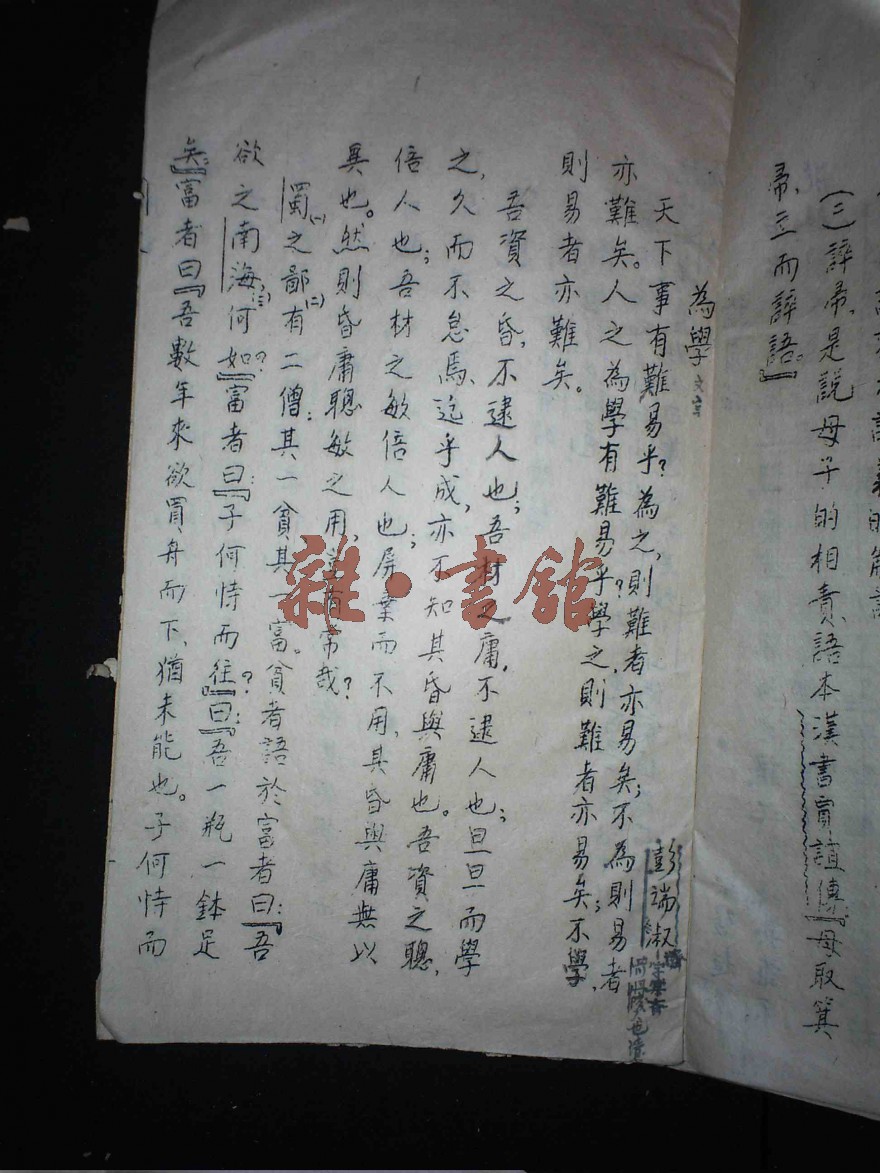 (三)誶帚,是說母子的相責語。本漢書賈誼傳『母取箕
帚,立而誶語。』
為學
彭端淑
天下事有難易乎?為之,則難者亦易矣;不為則易者
亦難矣。人之為學有難易乎?學之,則難者亦易矣;不學,
則易者亦難矣。
吾資之昏,不逮人也;吾材之庸,不逮人也;旦旦而學
之,久而不怠焉,迄乎成,亦不知其昏與庸也。吾資之聰,
倍人也;吾材之敏倍人也;屏棄而不用,其昏與庸無以
異也。然則昏庸聰敏之用,豈有常哉?
蜀(一)之鄙(二)有二僧:其一貧其一富。貧者語於富者曰:『吾
欲之南海,(三)何如?』富者曰:『子何恃而往?』曰:『吾一瓶一鉢足
矣。』富者曰『吾數年來欲買舟而下,猶未能也。子何恃而
雜·書館